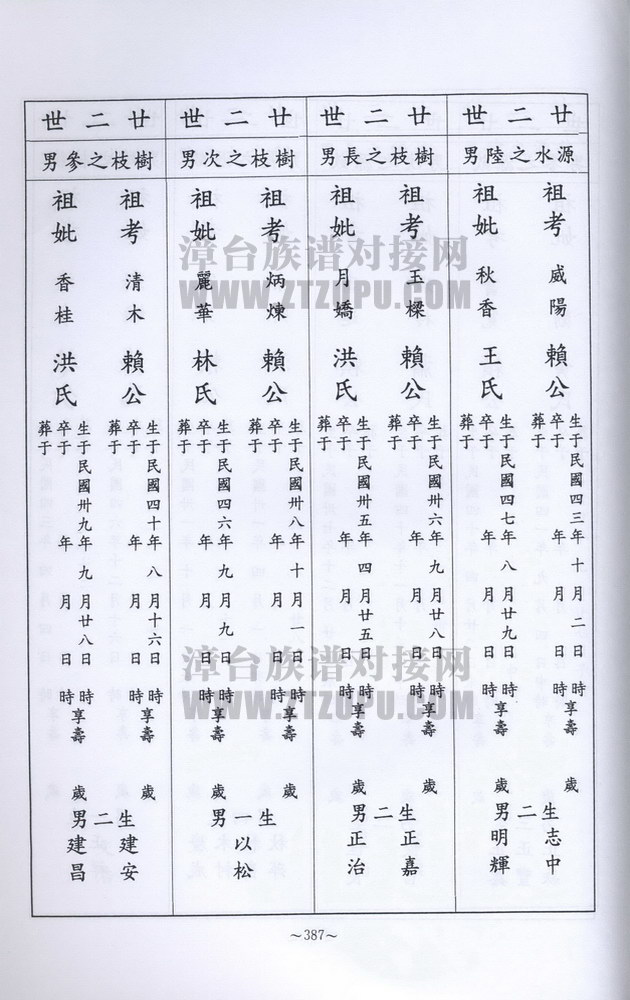 廿二世
源水之陸男
祖考 威陽 賴公
生于民國四三年十月二日時享壽 歲
卒于 年 月 日 時
葬于
祖妣 秋香 王氏
生于民國四七年八月廿九日時享壽 歲
卒于 年 月 日 時
葬于
生二男 志中 明輝
廿二世
樹枝之長男
祖考 玉樑 賴公
生于民國卅六年九月廿八日時享壽 歲
卒于 年 月 日 時
葬于
祖妣 月嬌 洪氏
生于民國卅五年四月廿五日時享壽 歲
卒于 年 月 日 時
葬于
生二男 正嘉 正治
廿二世
樹枝之次男
祖考 炳煉 賴公
生于民國卅八年十月一日時享壽 歲
卒于 年 月 日 時
葬于
祖妣 麗華 林氏
生于民國四六年九月九日時享壽 歲
卒于 年 月 日 時
葬于
生一男 以松
廿二世
樹枝之參男
祖考 清木 賴公
生于民國四十年八月十六日時享壽 歲
卒于 年 月 日 時
葬于
祖妣 香桂 洪氏
生于民國卅九年九月廿八日時享壽 歲
卒于 年 月 日 時
葬于
生二男 建安 建昌
～387～
漳台族谱对接网
WWW.ZTZUPU.COM
漳台族谱对接网
WWW.ZTZUPU.COM